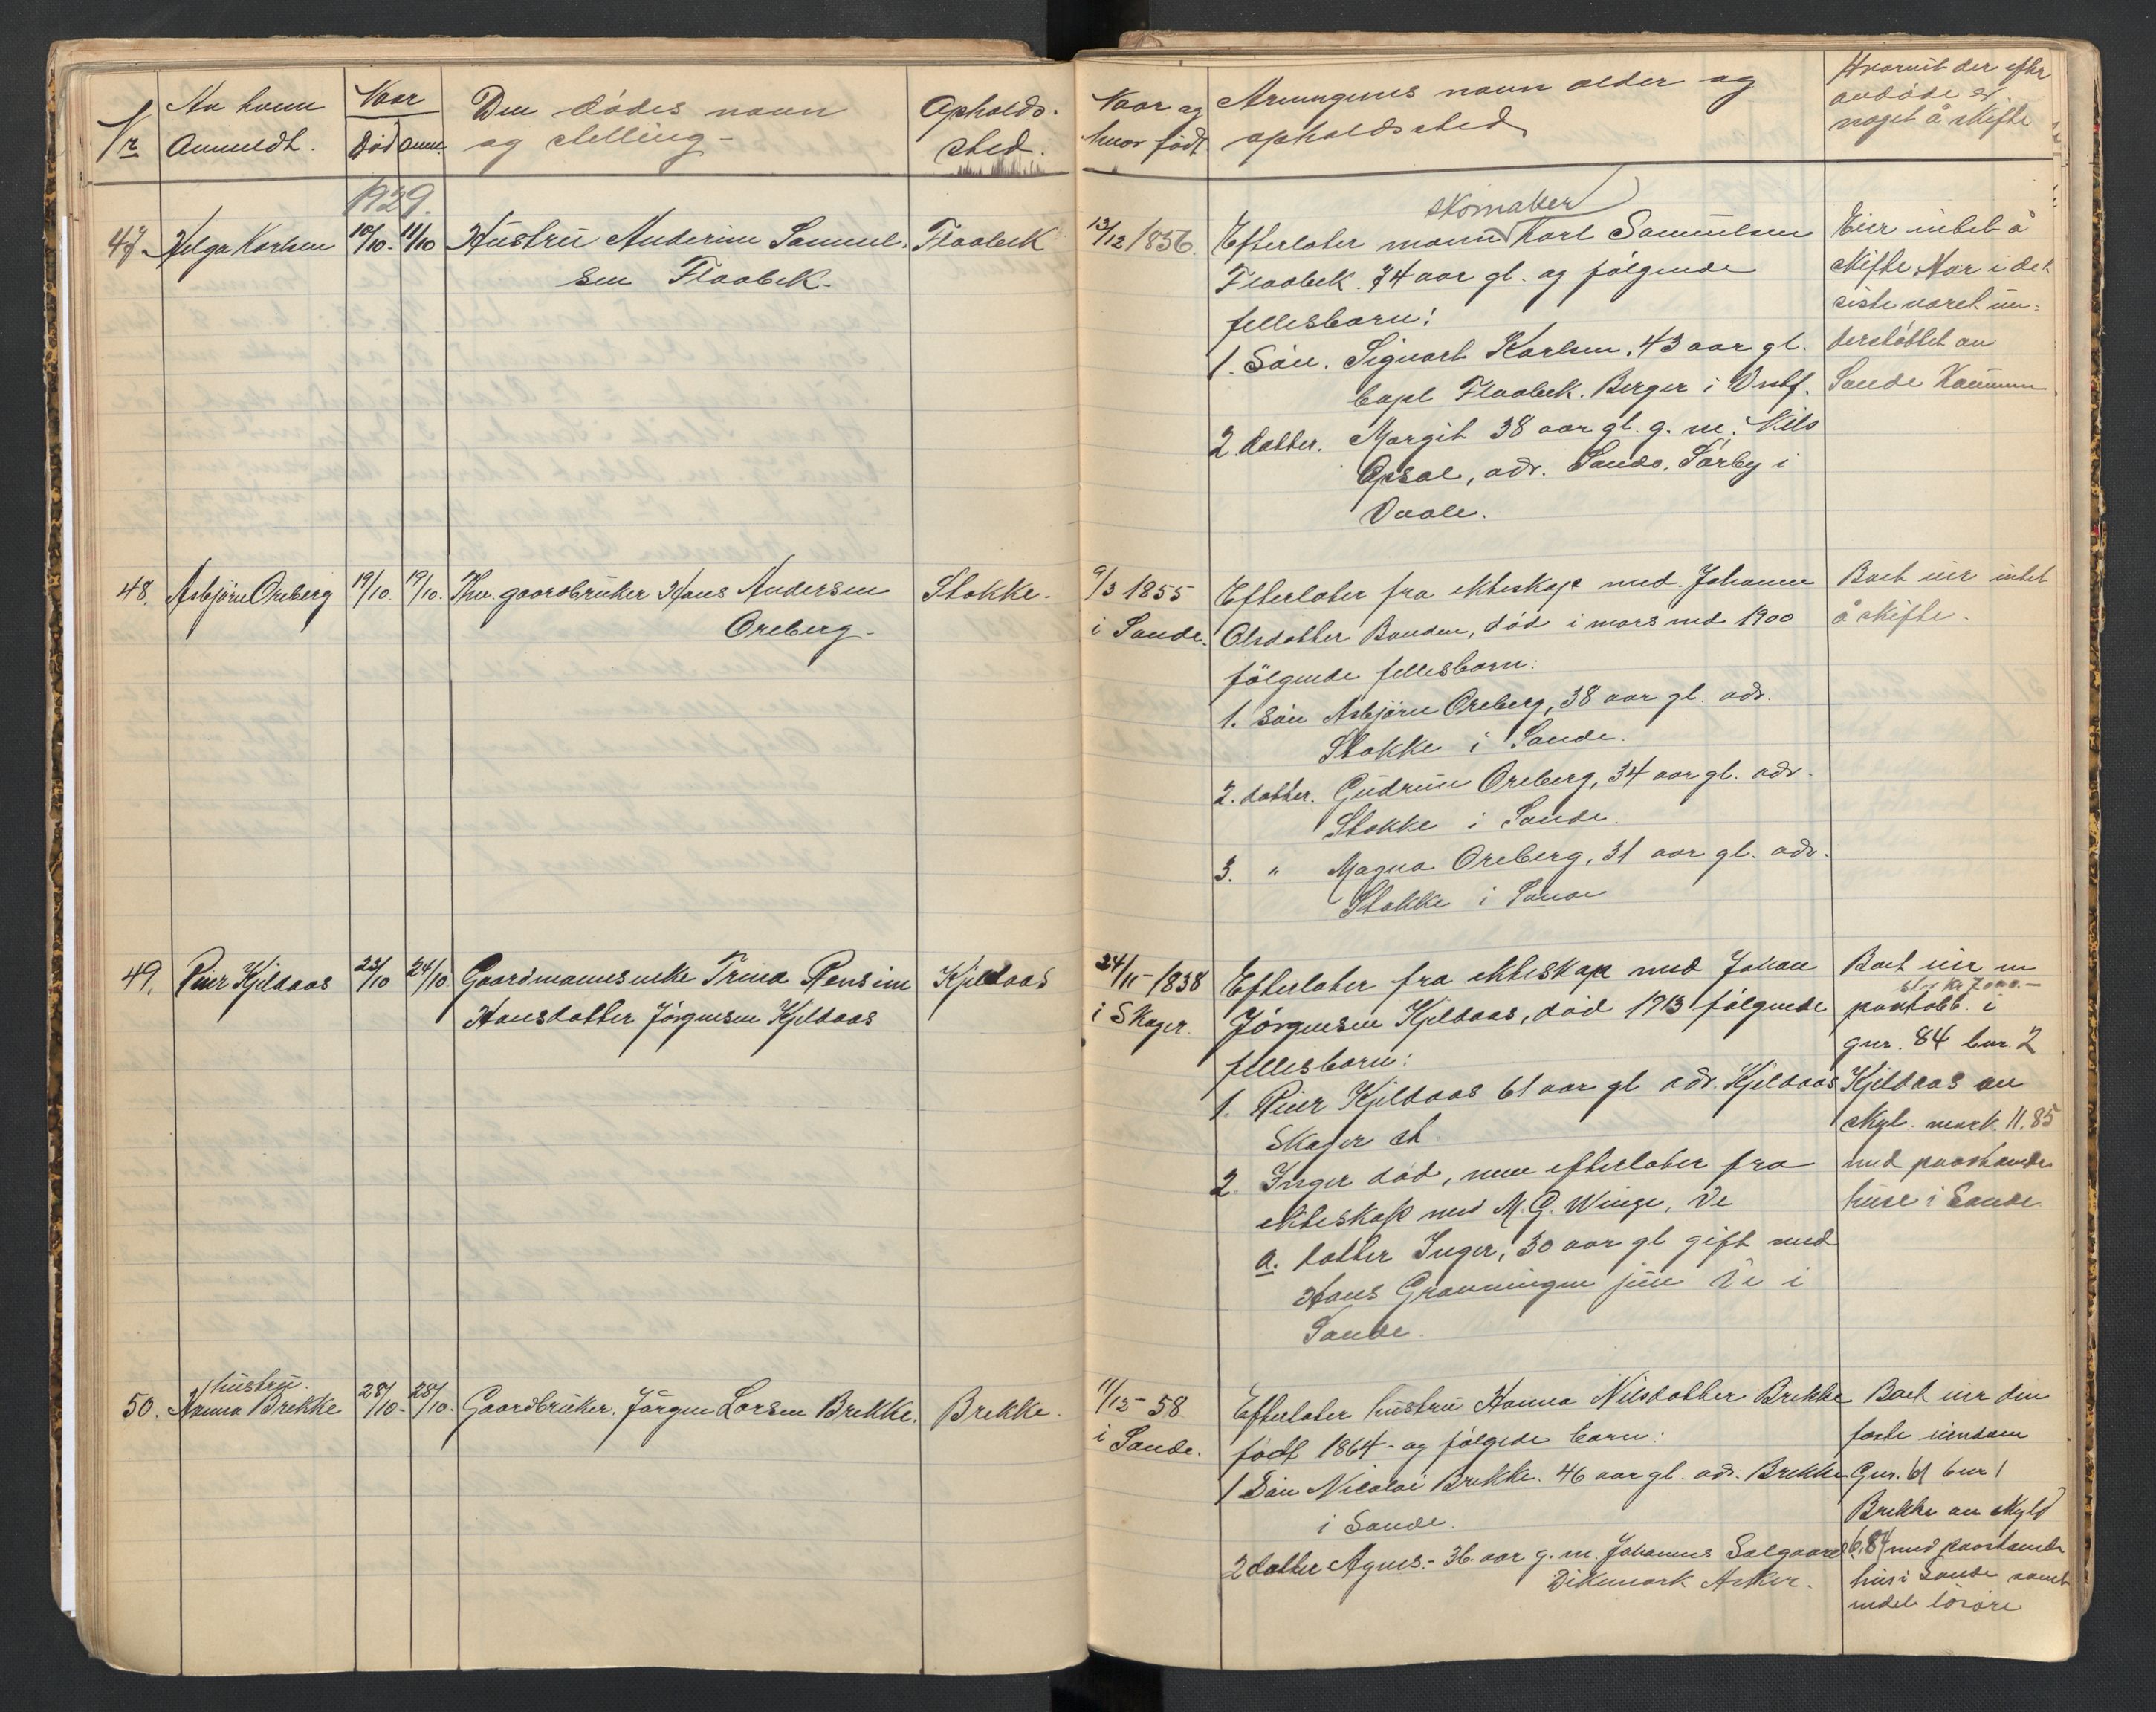 Nr
Av hvem
Anmeldt.
Naar
Død
anm.
Den dødes navn
og stelling -
Opholds-
sted.
Naar og
hvor født
Arvingenes navn alder og
opholdssted
Hvorvit der efter
avdøde er
noget å skifte
1929.
47. Helga Karlsen 10/10. 11/10 Hustru Anderine Samuel-
sen Flaabek.
Flaabek
13/12 1856.
skomaker
Efterlater mann Karl Samuelsen
Flaabek. 74 aar gl. og følgende
fellesbarn:
1. Søn. Sigvart Karlsen, 43 aar gl.
Flaabek. Berger i Vestf.
2. datter. Margit 38 aar gl. g. m. Nils
Opsal, adr. Sande. Sørby i
Vaale.
Eier intet å
skifte. Har i det
siste været un-
derstøttet av
Sande Kommune
48. Asbjørn Oreberg 19/10. 19/10. Fhv. gaardbruker Hans Andersen
Oreberg.
Stokke.
9/3 1855
i Sande.
Efterlater fra ekteskap med Johanne
Olsdatter Banden, død i mars md 1900
følgende fellesbarn:
1. Søn Asbjørn Oreberg, 38 aar gl. adr.
Stokke i Sande.
2. datter. Gudrun Oreberg, 34 aar gl. adr.
Stokke i Sande.
3. " Magna Oreberg, 31 aar gl. adr.
Stokke i Sande
Boet eier intet
å skifte.
49. Peier Kjeldaas 23/10 24/10. Gaardmannsenke Trina Pensine
Hansdatter Jørgensen Kjeldaas
Kjeldaas
24/11 - 1838
i Skoger.
Efterlater fra ekteskap med Johan
Jørgensen Kjeldaas, død 1913 følgende
fellesbarn:
1. Peier Kjeldaas 61 aar gl adr. Kjeldaas
Skoger st.
2. Inger død, men efterlater fra
ekteskap med M. G. Winge, Ve
a. datter Inger, 30 aar gl gift med
Hans Gravningen jun Ve i
Sande.
Boet eier en
stor kr 7000.-
pantobl. i
gnr. 84 bnr. 2
Kjeldaas av
skyl. mark 11.85
med paastaaende
huse i Sande
50. hustru.
Hanna Brekke 28/10 - 28/10. Gaardbruker. Jørgen Larsen Brekke.
Brekke.
11/12 - 58
i Sande.
Efterlater hustru Hanna Nilsdatter Brekke
født 1864 - og følgede barn:
1 Søn Nicolai Brekke. 46 aar gl. adr. Brekke
i Sande.
2 datter Agnes. - 36 aar g. m. Johannes Solgaard
Dikemark Asker.
Boet eier den
faste eiendom
Gnr. 61 bnr 1
Brekke av skyld
6,84 med paastaaende
hus i Sande samt
endel løsøre